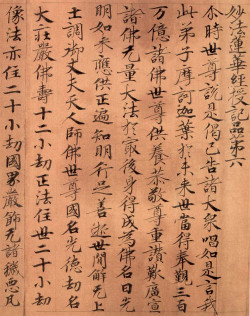 妙法蓮華經授記品第六
尒時世尊說是偈已告諸大衆唱如是言我
此弟子摩訶迦葉於未來世當得奉覲三百
万億諸佛世尊供養恭敬尊重讚歎廣宣
諸佛无量大法於最後身得成為佛名曰光
明如來應供正遍知明行足善逝世間解无上
士調御丈夫天人師佛世尊國名光德劫名
大莊嚴佛壽十二小劫正法住世二十小劫
像法亦住二十小劫國界嚴飾无諸穢惡瓦